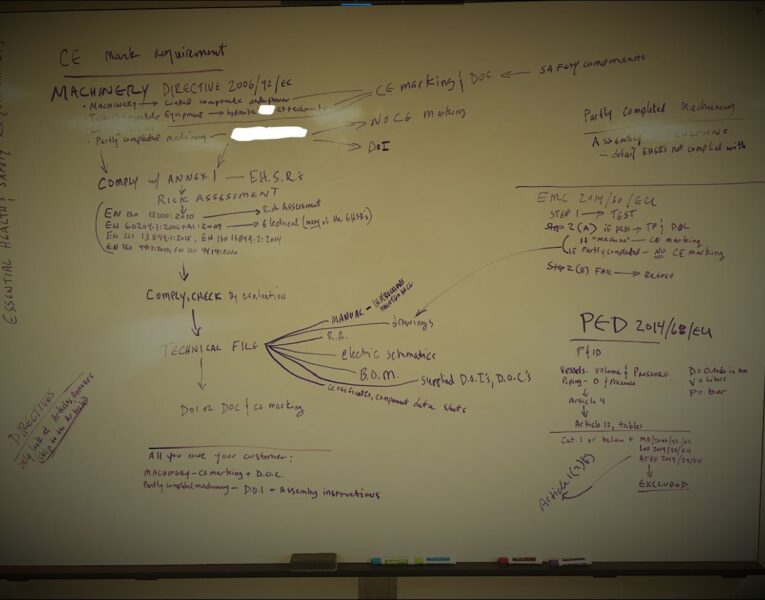 CE Mark Requirement
MACHINERY DIRECTIVE 2006/42/EC
• MACHINERY → Linked components
• Interchangeable Equipment → hydraulic attachments
• Partly completed machinery
CE marking & DOC ← SAFETY COMPONENTS
NO CE marking
DOI
COMPLY w/ ANNEX 1 — E.H.S.R.'s
RISK ASSESSMENT
EN ISO 12100:2010 → Risk Assessment
EN 60204-1:2006+A1:2009 → Electrical (many of the EHSR's)
EN ISO 13849-1:2015, EN ISO 13849-2:2014
EN ISO 4413:2010, EN ISO 4414:2010
COMPLY, CHECK by evaluation
TECHNICAL FILE
MANUAL - INSTALLATION MAINTENANCE
drawings
R.A.
electric schematics
B.O.M.
supplied D.O.I's, D.O.C's
Certificates, component data sheets
DOI or DOC & CE marking
All you owe your customer:
MACHINERY - CE marking + D.O.C.
Partly completed machinery - D.O.I + Assembly instructions
ESSENTIAL HEALTH & SAFETY REQUIREMENTS
DIRECTIVES
only look at Articles, Annexes
(skip to the Articles)
Partly Completed Machinery
ASSEMBLY INSTRUCTIONS
- detail EHSR's not complied with
EMC 2014/30/EU
STEP 1 → TEST
STEP 2(A) is pass → TF & DOC
IS "machine" - CE marking
IS Partly completed - NO CE marking
STEP 2(B) FAIL → Retest
PED 2014/68/EU
P&ID
Vessels - Volume & PRESSURE
Piping - D & Pressure
D = Outside in mm
V = Liters
P = bar
Article 4
Article 13, tables
Cat 1 or below + MD/2006/42/EC
LVD 2014/35/EU
ATEX 2014/34/EU
EXCLUDED
Article 1(2)(f)